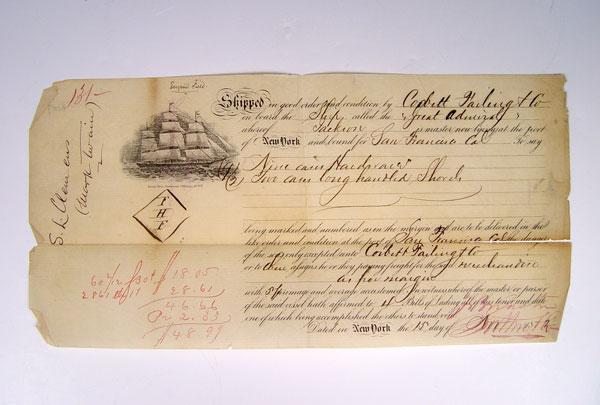 131-
Eugene Field
S. L. Clemens
(Mark Twain)
F
H
F
Shipped in good order and condition by Corbett Failing & Co
on board the Ship called the Great Admiral
whereof Jackson is master now lying at the port
of New York and bound for San Francisco Cal To say
Nine cases Hardware
Two cases long handled Shovels
being marked and numbered as in the margin and are to be delivered in the
like order and condition at the port of San Francisco Cal the danger
of the seas only excepted unto Corbett Failing & Co
or to their assigns he or they paying freight for the said merchandise
as per margin
with 5% primage and average accustomed. In witness whereof the master or purser
of the said vessel hath affirmed to 4 Bills of Lading all of this tenor and date
one of which being accomplished the others to stand void.
Dated in New York the 15 day of
18.05
28.61
46.66
Pr 2.33
$48.99